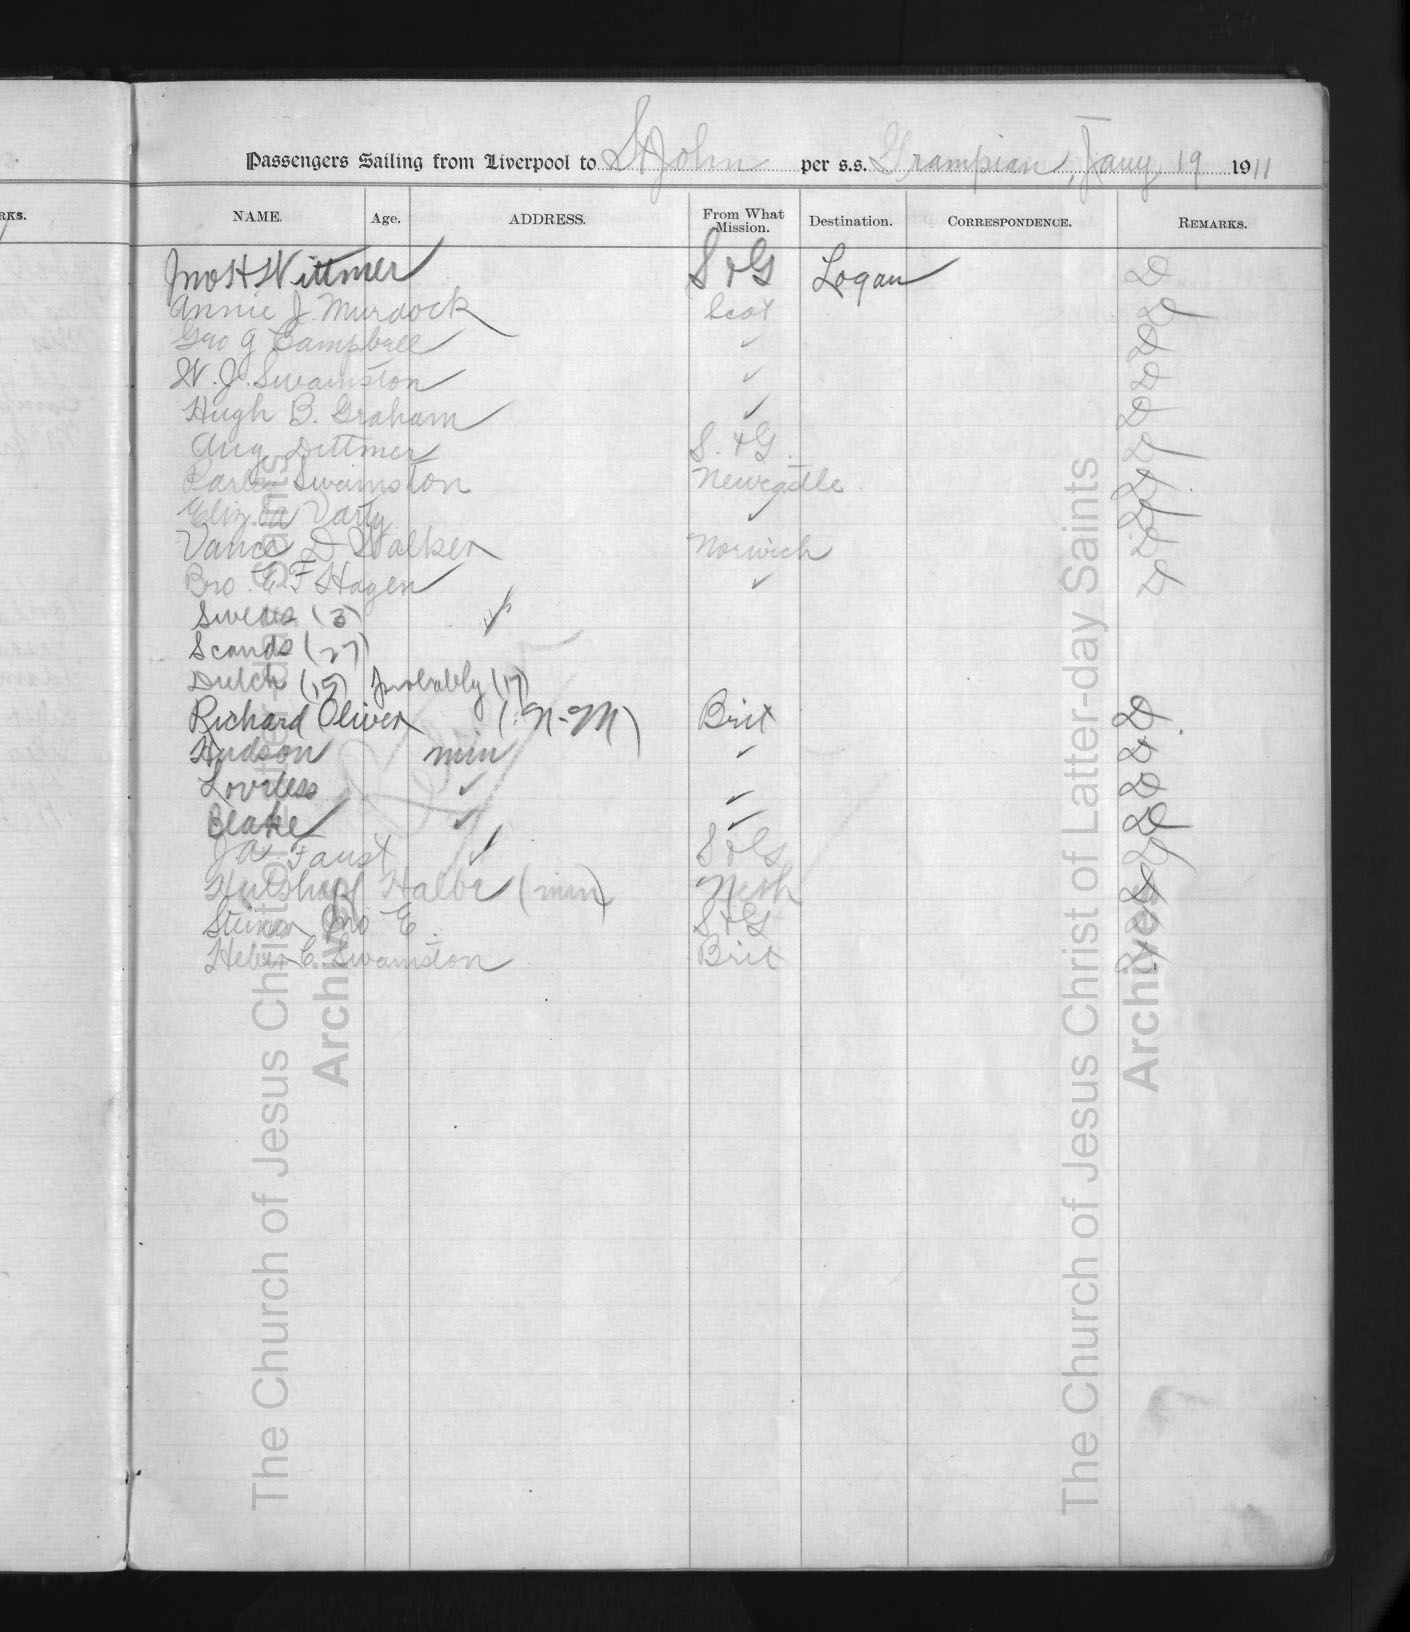 RKS.
Passengers Sailing from Liverpool to St John per s.s. Grampian, Jany 19 1911
NAME. Age. ADDRESS. From What Mission. Destination. CORRESPONDENCE. REMARKS.
Jno H Wittmer S & G Logan D
Annie J. Murdock Scot D
Geo G Campbell ✓ D
W. J. Swainston ✓ D
Hugh B. Graham ✓ D
Aug Dittmer S. & G. D
Parley Swainston Newcastle D
Eliz. Varty ✓ D
Vance D Walker Norwich D
Bro. E. F Hagen ✓ D
Swedes (3) ✓
Scands (27)
Dutch (15) probably (17)
Richard Oliver (N-M) Brit D
Hudson min ✓ D
Loveless ✓ ✓ D
Blake ✓ ✓ D
Jas. Faust ✓ S & G D
Hulshoff Halbe (min) Neth D
Bro E. S & G D
Heber C. Swainston Brit D
The Church of Jesus Christ of Latter-day Saints
Archives
The Church of Jesus Christ of Latter-day Saints
Archives